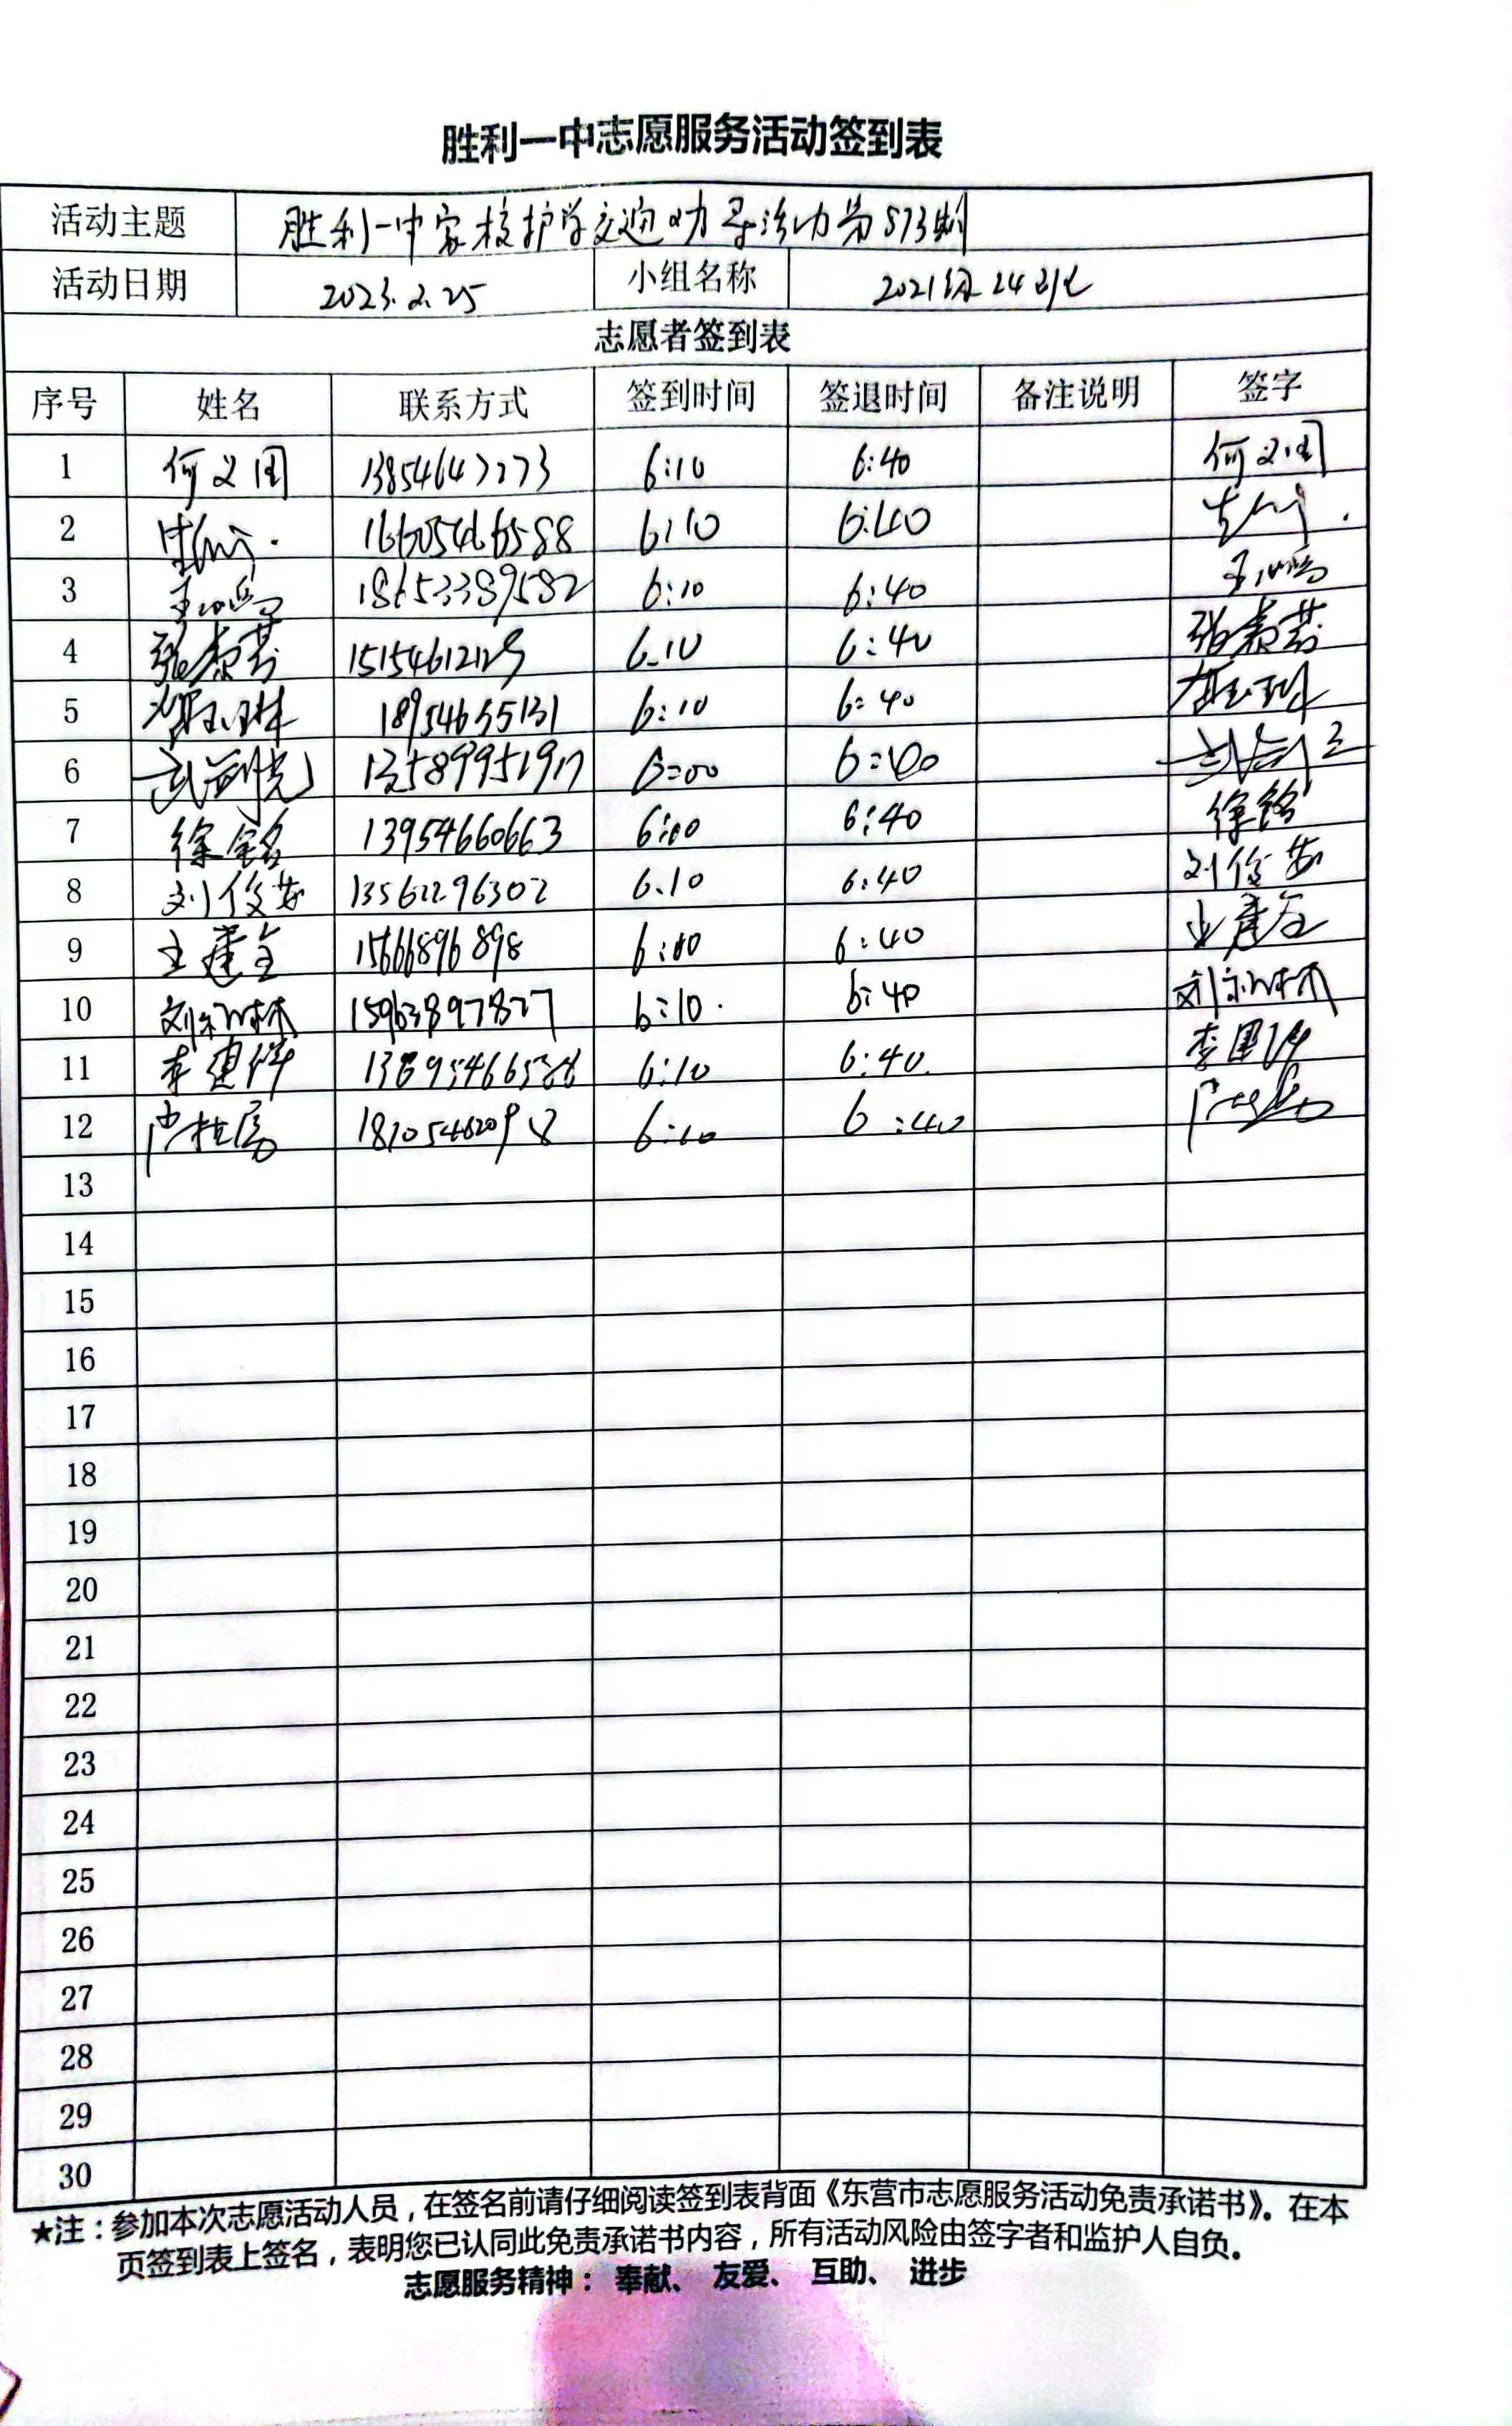 胜利一中志愿服务活动签到表
活动主题 胜利一中家校护学交通劝导活动第873期
活动日期 2023.2.25 小组名称 2021级24班
志愿者签到表
序号 姓名 联系方式 签到时间 签退时间 备注说明 签字
1 何义国 13854647273 6:10 6:40 何义国
2 6:10 6:40
3 18653389582 6:10 6:40
4 6.10 6:40
5 18954655131 6:10 6:40
6 6:00
7 徐铭 13954660663 6:40 徐铭
8 刘俊芬 13562296302 6.10 6:40 刘俊芬
9 王建全 15666896898 6:40 王建全
10 15963897827 6:10 6:40
11 李建祥 6:10 6:40
12 6:10 6:40
13
14
15
16
17
18
19
20
21
22
23
24
25
26
27
28
29
30
★注：参加本次志愿活动人员，在签名前请仔细阅读签到表背面《东营市志愿服务活动免责承诺书》。在本
页签到表上签名，表明您已认同此免责承诺书内容，所有活动风险由签字者和监护人自负。
志愿服务精神：奉献、友爱、互助、进步